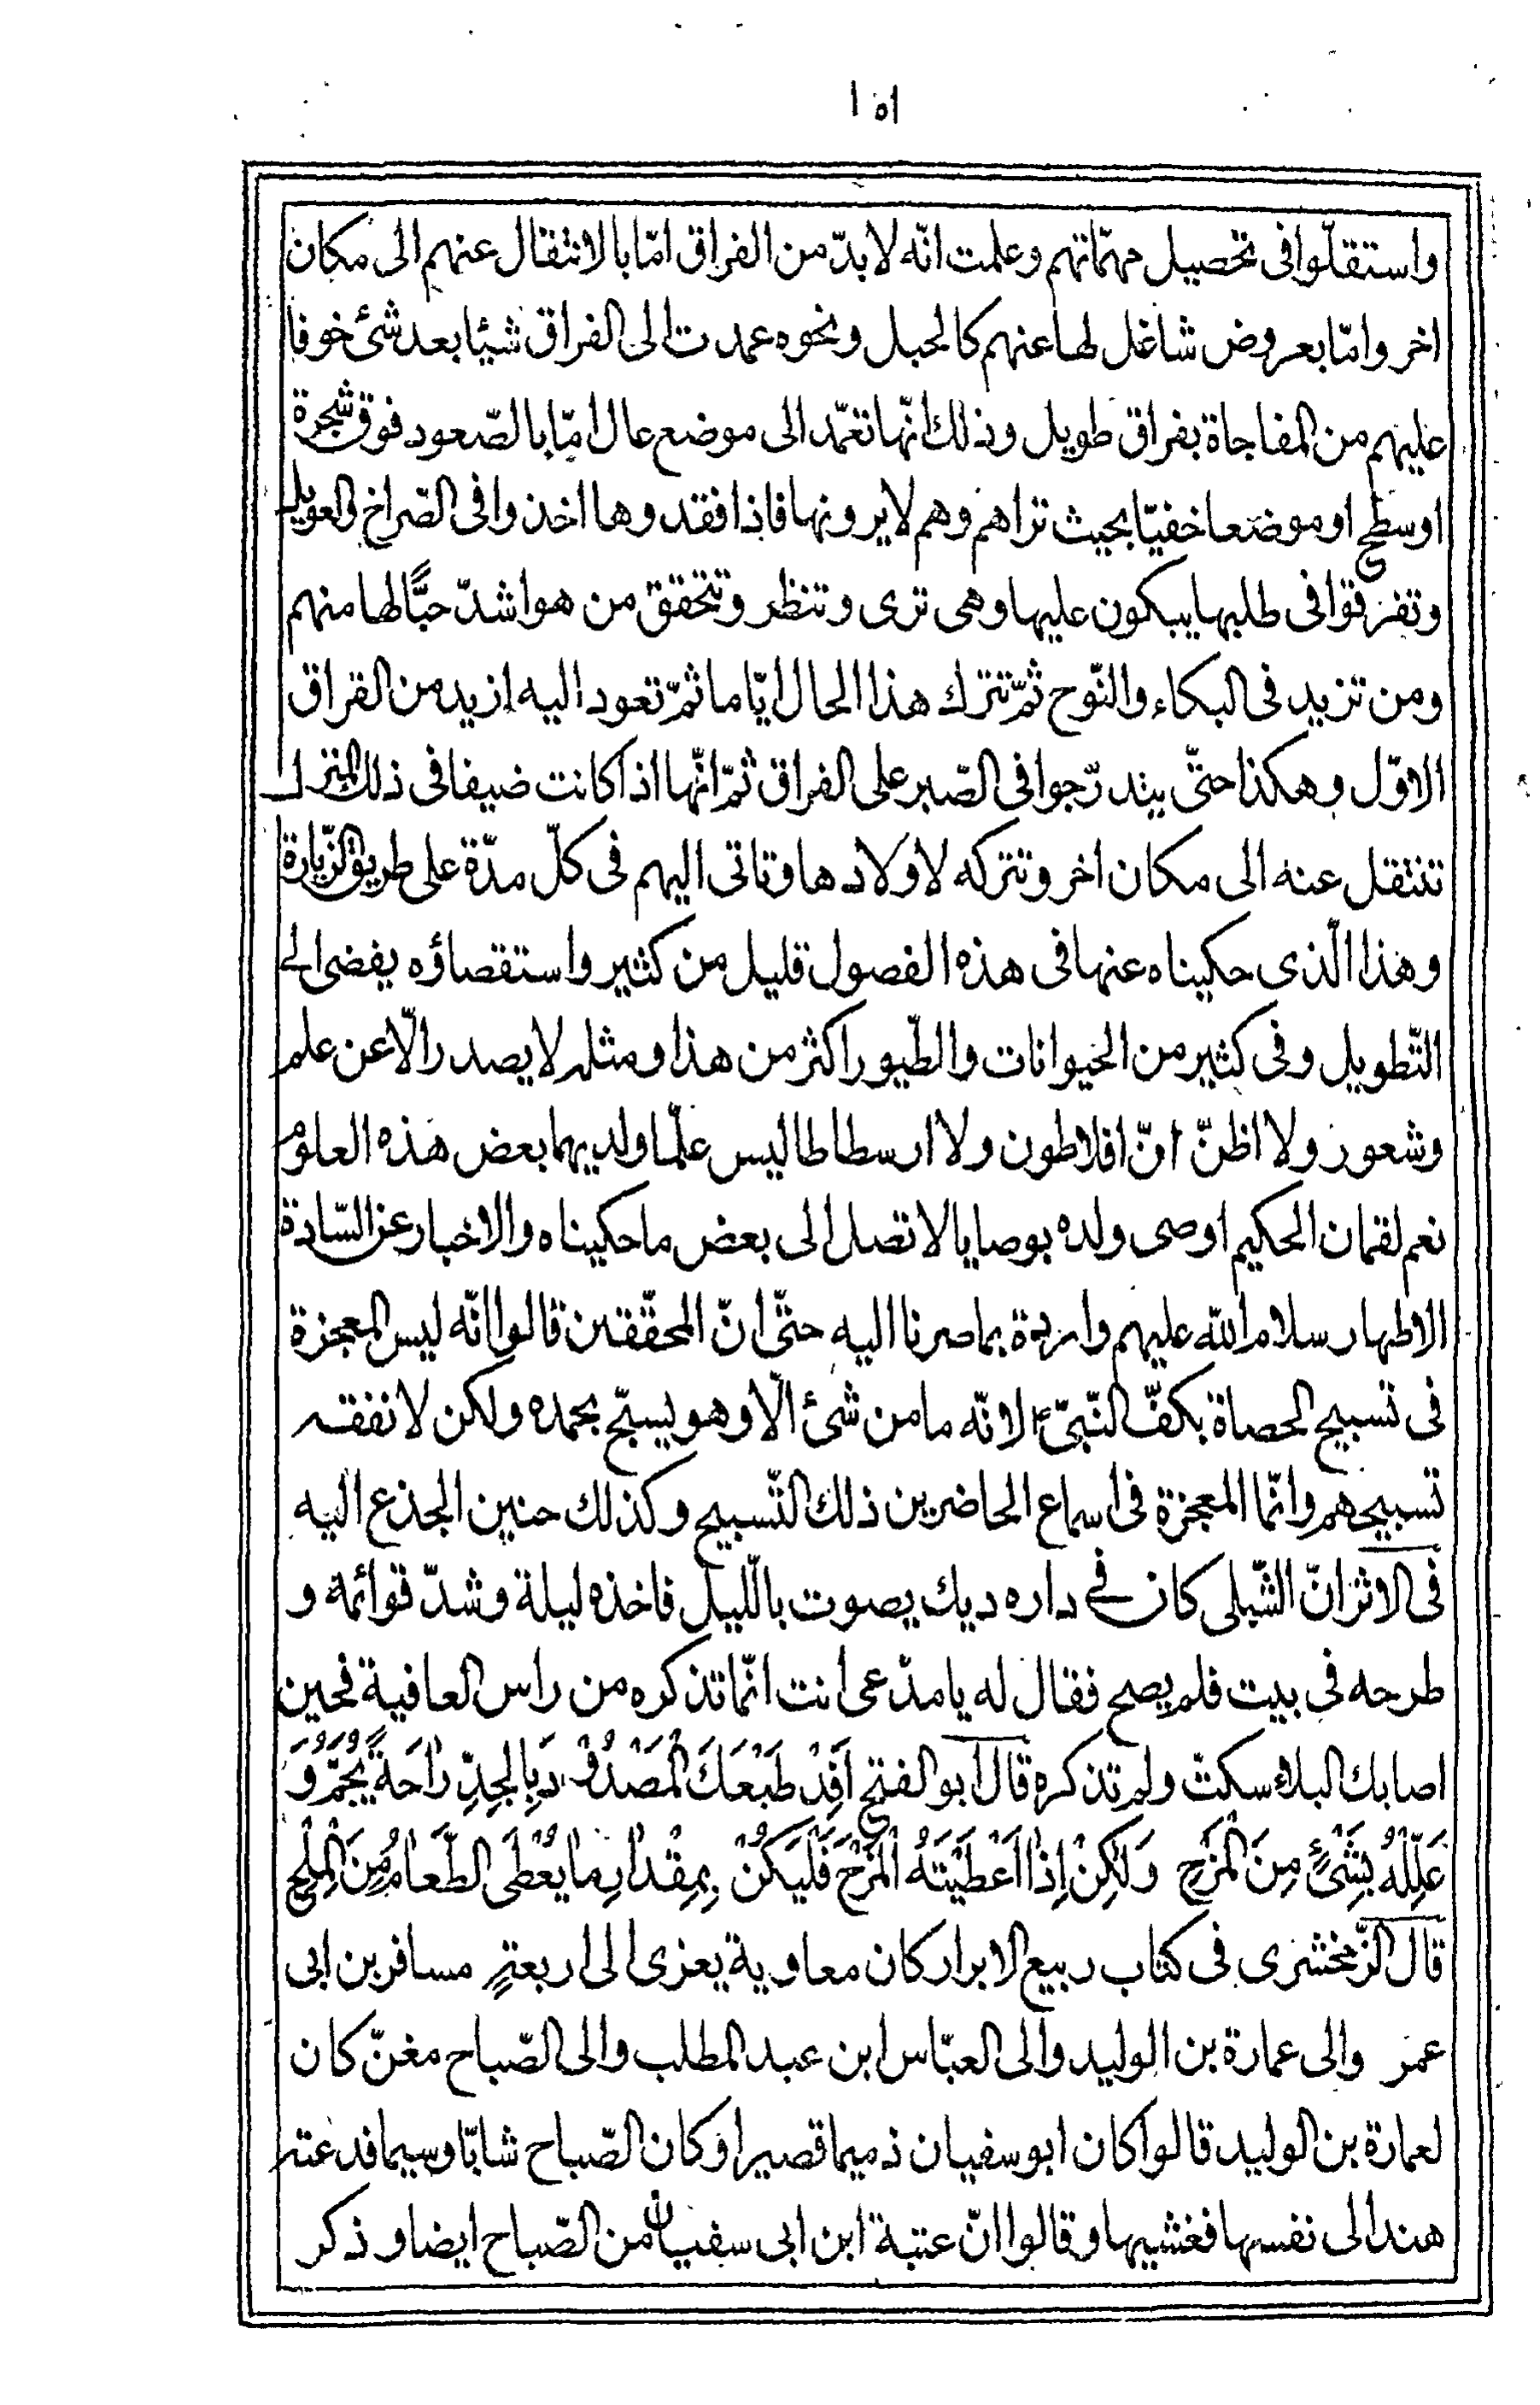 ١٥١
واستقلّوا فى تحصيل مهمّاتهم وعلمت انّه لا بدّ من الفراق امّا بالانتقال عنهم الى مكان
اخر وامّا بعروض شاغل لها عنهم كالحبل ونحوه عمدت الى الفراق شيئا بعد شئ خوفا
عليهم من المفاجاة بفراق طويل وذلك انّها تعمّد الى موضع عال امّا بالصّعود فوق شجرة
اوسطح او موضعا خفيّا بحيث تراهم وهم لا يرونها فاذا فقدوها اخذوا فى الصّراخ والعويل
وتفرّقوا فى طلبها يبكون عليها وهى ترى وتنظر وتتحقق من هو اشدّ حبًّا لها منهم
ومن تزيد فى البكاء والنّوح ثمّ تترك هذا الحال ايّاما ثمّ تعود اليه ازيد من الفراق
الاوّل وهكذا حتّى يتدرّجوا فى الصّبر على الفراق ثمّ انّها اذا كانت ضيفا فى ذلك المنزل
تنتقل عنه الى مكان اخر وتتركه لاولادها وتاتى اليهم فى كلّ مدّة على طريق الزّيارة
وهذا الّذى حكيناه عنها فى هذه الفصول قليل من كثير واستقصاؤه يفضى الى
التّطويل وفى كثير من الحيوانات والطّيور اكثر من هذا ومثله لا يصدر الّا عن علم
وشعور ولا اظنّ انّ افلاطون ولا ارسطاطاليس علّما ولديهما بعض هذه العلوم
نعم لقمان الحكيم اوصى ولده بوصايا لا تصل الى بعض ما حكيناه والاخبار عن السّادة
الاطهار سلام الله عليهم واردة بما صرنا اليه حتّى انّ المحقّقين قالوا انّه ليس المعجزة
فى تسبيح الحصاة بكفّ النّبىّ لانّه ما من شئ الّا وهو يسبّح بحمده ولكن لا نفقه
تسبيحهم وانّما المعجزة فى اسماع الحاضرين ذلك التّسبيح وكذلك حنين الجذع اليه
فى الاثر انّ الشّبلى كان فى داره ديك يصوت بالّليل فاخذه ليلة وشدّ قوائمه و
طرحه فى بيت فلم يصح فقال له يا مدّعى انت انّما تذكره من راس العافية فحين
اصابك البلاء سكتّ ولم تذكره قال ابو الفتح اَفِدْ طَبْعَكَ الْمَصْدُوْدَ بِالجِدِّ رٰاحَةً يُجَمُّ وَ
عَلِّلْهُ بِشَىْءٍ مِنَ الْمَزْحِ وَلٰكِنْ اِذٰا اَعْطَيْتَهُ الْمَزْحَ فَلْيَكُنْ بِمِقْدٰارِ مٰا يُعْطَى الطَّعٰامُ مِنَ الْمِلْحِ
قال الزّمخشرى فى كتاب ربيع الابرار كان معاوية يعزى الى اربعة مسافر بن ابى
عمر والى عمارة بن الوليد والى العبّاس ابن عبد المطلب والى الصّباح مغنّ كان
لعمارة بن الوليد قالوا كان ابو سفيان ذميما قصيرا وكان الصّباح شابّا وسيما فدعته
هند الى نفسها فغشيها وقالوا انّ عتبة ابن ابى سفيان من الصّباح ايضا وذكر